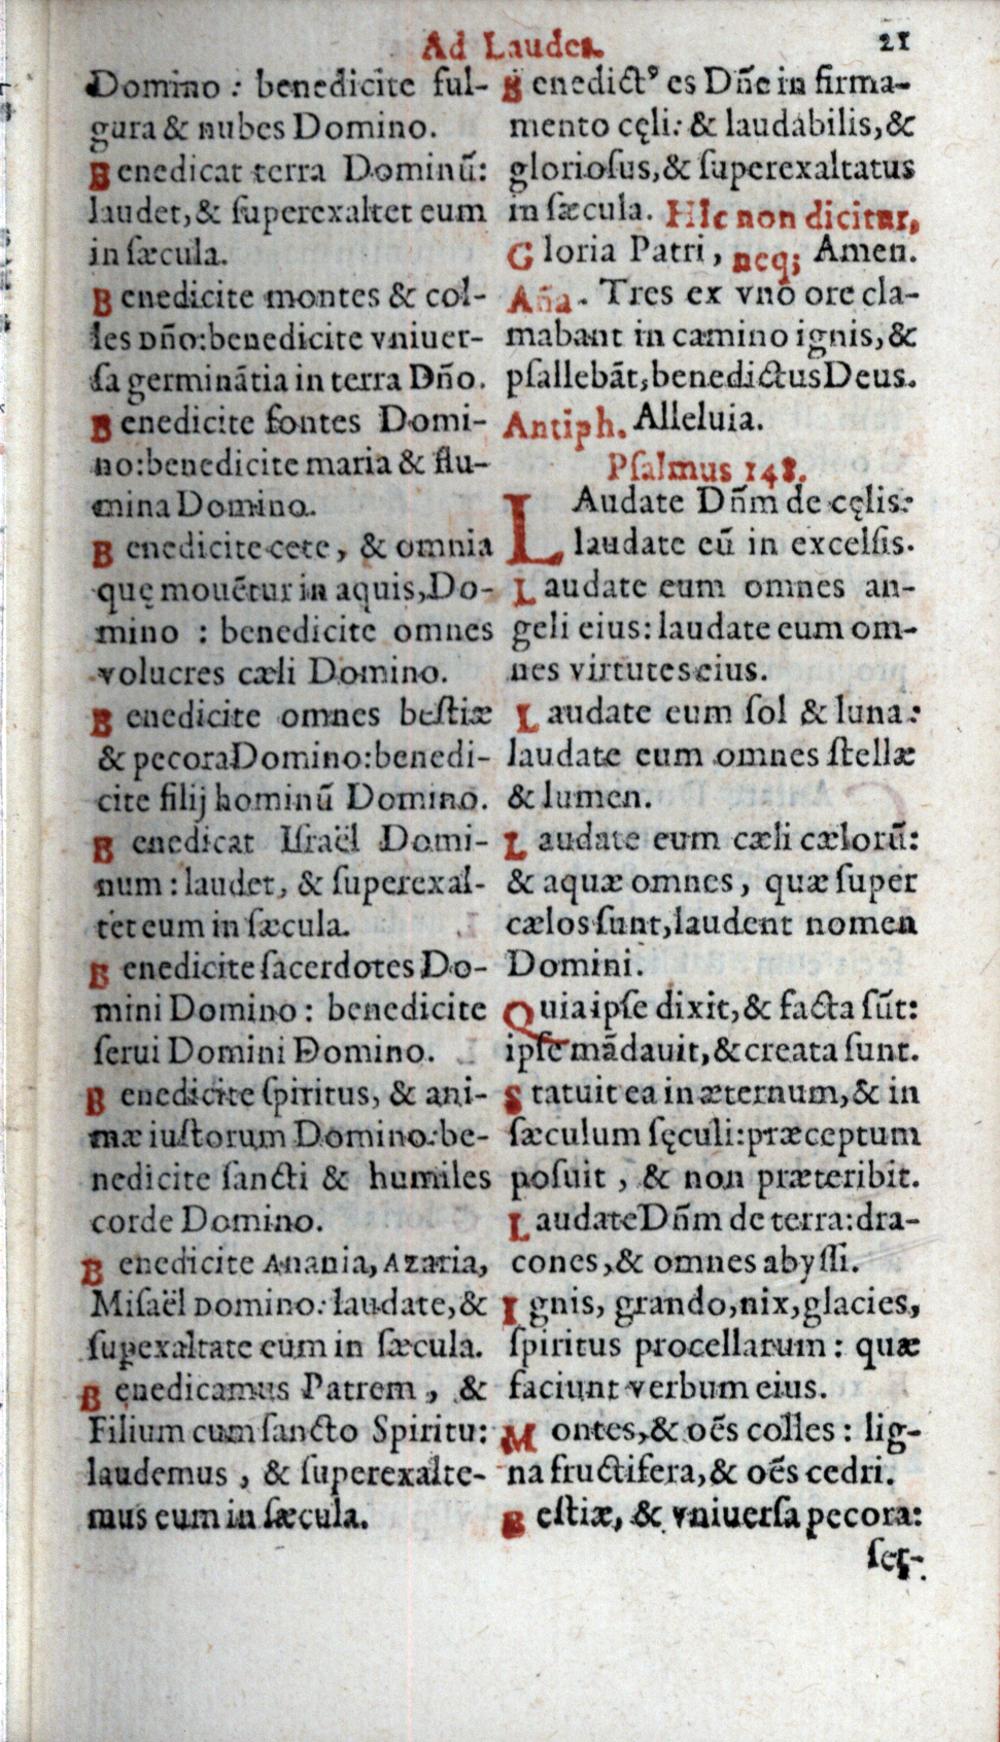 Ad Laudes. 21
Domino : benedicite ful-
gura & nubes Domino.
Benedicat terra Dominū:
laudet, & ſuperexaltet eum
in ſæcula.
Benedicite montes & col-
les Dño: benedicite vniuer-
ſa germinātia in terra Dño.
Benedicite fontes Domi-
no: benedicite maria & flu-
mina Domino.
Benedicite cete, & omnia
quę mouētur in aquis, Do-
mino : benedicite omnes
volucres cæli Domino.
Benedicite omnes beſtiæ
& pecora Domino: benedi-
cite filij hominū Domino.
Benedicat Iſraël Domi-
num : laudet, & ſuperexal-
tet eum in ſæcula.
Benedicite ſacerdotes Do-
mini Domino : benedicite
ſerui Domini Domino.
Benedicite ſpiritus, & ani-
mæ iuſtorum Domino: be-
nedicite ſancti & humiles
corde Domino.
Benedicite Anania, Azaria,
Miſaël Domino: laudate, &
ſuꝑexaltate eum in ſæcula.
Benedicamus Patrem, &
Filium cum ſancto Spiritu:
laudemus, & ſuperexalte-
mus eum in ſæcula.
Benedictꝰ es Dñe in firma-
mento cęli: & laudabilis, &
glorioſus, & ſuperexaltatus
in ſæcula. HIc non dicitur,
Gloria Patri, neq; Amen.
Aña. Tres ex vno ore cla-
mabant in camino ignis, &
pſallebāt, benedictus Deus.
Antiph. Alleluia.
Pſalmus 148.
LAudate Dñm de cęlis:
laudate eū in excelſis.
Laudate eum omnes an-
geli eius: laudate eum om-
nes virtutes eius.
Laudate eum ſol & luna:
laudate eum omnes ſtellæ
& lumen.
Laudate eum cæli cælorū:
& aquæ omnes, quæ ſuper
cælos ſunt, laudent nomen
Domini.
Quia ipſe dixit, & facta sūt:
ipſe mādauit, & creata ſunt.
Statuit ea in æternum, & in
ſæculum ſęculi: præceptum
poſuit, & non præteribit.
Laudate Dñm de terra: dra-
cones, & omnes abyſſi.
Ignis, grando, nix, glacies,
ſpiritus procellarum : quæ
faciunt verbum eius.
Montes, & oēs colles : lig-
na fructifera, & oēs cedri.
Beſtiæ, & vniuerſa pecora:
ſer-